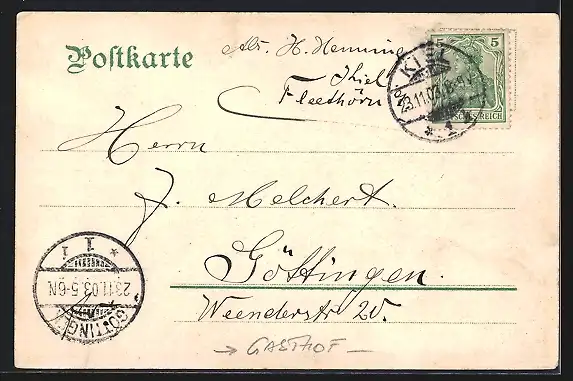 Postkarte
Abs. H. Henning
Kiel
Fleethörn
5 5
DEUTSCHES REICH
KIEL
23.11.03. 8-9 V
* 1 *
Herrn
J. Melchert.
Göttingen.
Weenderstr 20.
→ GASTHOF —
* 1 1
23.11.03. 5-6N
GÖTTINGEN